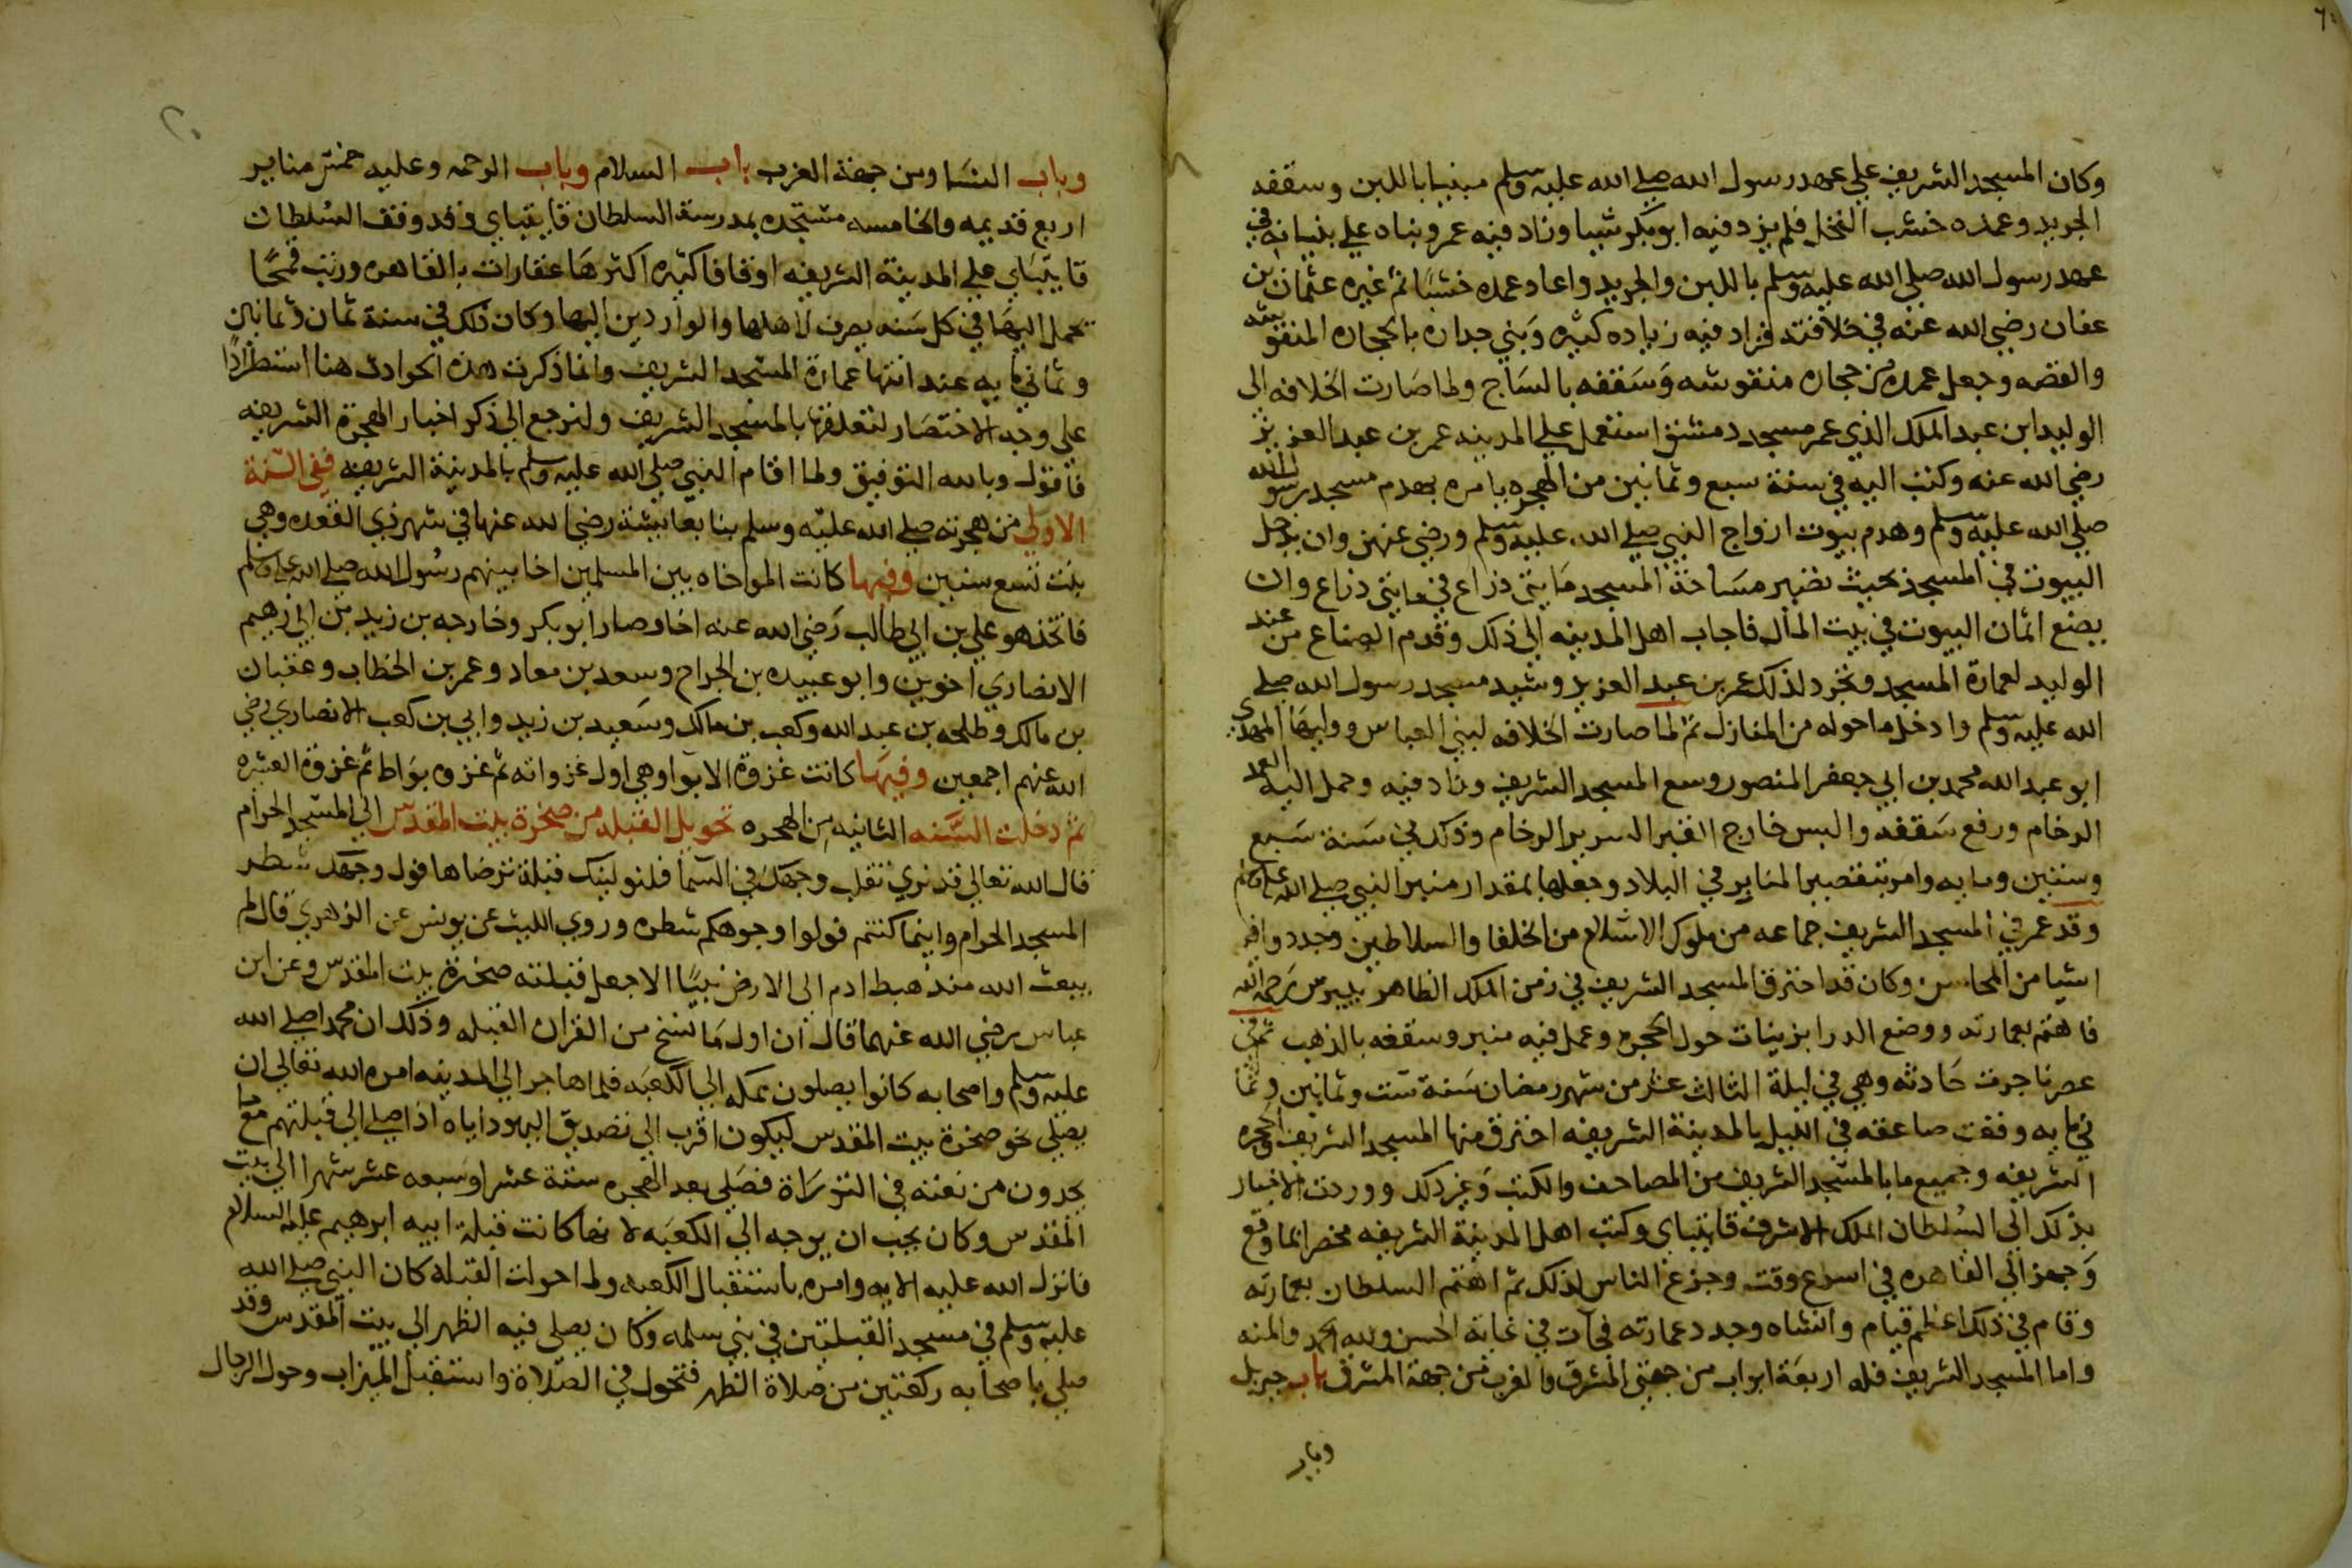 وكان المسجد الشريف علي عهد رسول الله صلي الله عليه وسلم مبنيا باللبن وسقفه
الجريد وعمده خشب النخل فلم يزد فيه ابو بكر شيا وزاد فيه عمر وبناه علي بنيانه في
عهد رسول الله صلي الله عليه وسلم باللبن والجريد واعاد عمده خشبًا ثم غيره عثمان بن
عفان رضي الله عنه في خلافته فزاد فيه زياده كثيره وَبني جداره بالحجاره المنقوشه
والقصه وجعل عمده من حجاره منقوشه وَسَقفه بالسَاج ولما صَارت الخلافه الى
الوليد ابن عبد الملك الذي عمر مسجد دمشق استعمل علي المدينه عمر بن عبد العزيز
رضي الله عنه وكتب اليه في سنة سبع وثمانين من الهجره يامره بهدم مسجد رسول الله
صلي الله عليه وسلم وهدم بيوت ازواج النبي صلي الله عليه وسلم ورضي عنهن وان يدخل
البيوت في المسجد بحيث تصير مسَاحة المسجد مَايتي ذراع في مايتي ذراع وان
يضع اثمان البيوت في بيت المال فاجاب اهل المدينه الي ذلك وقدم الصناع من عند
الوليد لعمارة المسجد وتجرد لذلك عمر بن عبد العزيز وشيد مسجد رسول الله صلي
الله عليه وسلم وادخل ما حوله من المنازل ثم لما صارت الخلافه لبني العباس ووليها المهدي
ابو عبد الله محمد بن ابي جعفر المنصور وسع المسجد الشريف وزاد فيه وحمل اليه العمد
الرخام ورفع سَقفه والبس خارج القبر السرير الرخام وذلك في سَنة سَبع
وستين ومايه وامر بتقصير المنابر في البلاد وجعلها بمقدار منبر النبي صلي الله عليه وسلم
وقد عمر في المسجد الشريف جماعه من ملوك الاسلام من الخلفا والسلاطين وجدد وافيه
اشيا من المحاسن وكان قد احترق المسجد الشريف في زمن الملك الظاهر بيبرس رحمه الله
فاهتم بعمارته ووضع الدرابزينات حول الحجره وعمل فيه منبر وسقفه بالذهب ثم في
عصرنا جرت حَادثه وهي في ليلة الثالث عشر من شهر رمضان سَنة ست وثمانين وثما
ني مايه وقعت صاعقه في الليل بالمدينة الشريفه احترق منها المسجد الشريف والحجره
الشريفه وجميع ما بالمسَجد الشريف من المصاحف والكتب وَغير ذلك ووردت الاخبار
بذلك الي السُلطان الملك الاشرف قايتباي وكتب اهل المدينة الشريفه محضرا بما وقع
وَجهز الي القاهره في اسرع وقت وجزع الناس لذلك ثم اهتم السلطان بعمارته
وقام في ذلك اعظم قيام وانشاه وجدد عمارته فجآت في غاية الحسن ولله الحمد والمنه
واما المسجد الشريف فله اربعَة ابواب من جهتي المشرق والغرب فمن جهة المشرق باب جبريل
وباب
وباب النسَا ومن جهة الغرب باب السلام وباب الرحمه وعليه خمس منابر
اربع قديمه والخامسه مستجده بمدرسة السلطان قايتباي وقد وقف السُلطان
قايتبَاي علي المدينة الشريفه اوقافا كثيره اكثرهَا عقارات بالقاهره ورتب قمحًا
يحمل اليهَا في كل سَنه يصرف لاهلها والواردين اليها وكان ذلك في سنة ثمان وثمانين
وثماني مايه عند انتها عمارة المسَجد الشريف وانما ذكرت هذه الحوادث هنا استطرادًا
على وجه الاختصَار لتعلقها بالمسَجد الشريف ولنرجع الي ذكر اخبار الهجرة الشريفه
فاقول وبالله التوفيق ولما اقام النبي صلي الله عليه وسلم بالمدينة الشريفه ففي السَّنة
الاولي من هجرته صلي الله عليه وسلم بنا بعايشة رضي الله عنها في شهر ذي القعده وهي
بنت تسع سنين وفيها كانت المواخاه بين المسلمين اخا بينهم رسُول الله صلي الله عليه وسلم
فاتخذ هو علي بن ابي طالب رَضي الله عنه اخا وصار ابو بكر وخارجه بن زيد بن ابي زهير
الانصاري اخوين وابو عبيده بن الجراح وسعد بن معاد وعمر بن الخطاب وعتبان
بن مالك وطلحه بن عبد الله وكعب بن مالك وسَعيد بن زيد وابي بن كعب الانصاري رضي
الله عنهم اجمعين وفيهَا كانت غزوة الابوا وهي اول غزواته ثم غزوه بوَاط ثم غزوة العشيره
ثم دخلت السَّنه الثانيه من الهجره تحويل القبله من صخرة بيت المقدس الي المسَجد الحرام
قال الله تعالي قد نري تقلب وجهك في السَمآ فلنولينك قبلة ترضاها فول وجهك شطر
المسجد الحرام واينما كنتم فولوا وجوهكم شطره وروي الليث عن يونس عن الزهري قال لم
يبعث الله منذ هبط ادم الى الارض نبيًا الا جعل قبلته صخرة بيت المقدس وعن ابن
عباس رضي الله عنهما قال ان اول مَا نسخ من القران القبله وذلك ان محمدا صلي الله
عليه وسلم واصحابه كانوا يصلون بمكه الي الكعبَه فلما هاجر الي المدينه امره الله تعالي ان
يصلي نحو صخرة بيت المقدس ليكون اقرب الي تصديق اليهود اياه اذا صلي الي قبلتهم مع ما
يجدون من نعته في التورَاة فصَلي بعد الهجره ستة عشر اوسَبعه عشر شهرا الي بيت
المقدس وكان يحب ان يوجه الي الكعبَه لانها كانت قبلة ابيه ابرهيم عليه السلام
فانزل الله عليه الايه وامره باستقبال الكعبه ولما حولت القبله كان النبي صلي الله
عليه وسلم في مسجد القبلتين في بني سلمه وكان يصلي فيه الظهر الي بيت المقدس وقد
صلي باصحابه ركعتين من صلاة الظهر فتحول في الصَلاة واستقبل الميزاب وحول الرجال